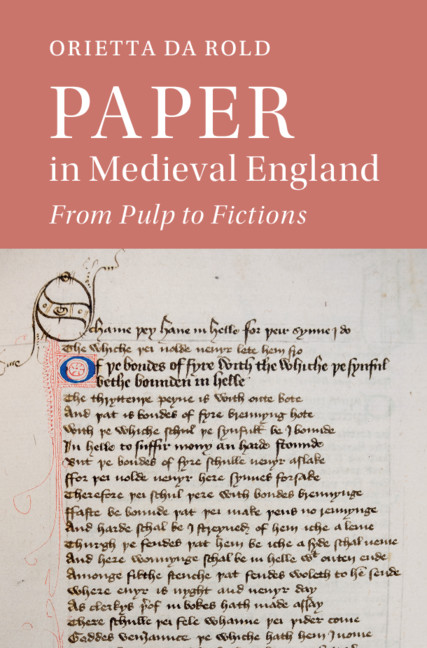 ORIETTA DA ROLD
PAPER
in Medieval England
From Pulp to Fictions
Schame þey haue in helle for þeir synne I do
The whiche þei nolde neuyr lete hem fro
Of þe bondes of fyre with the whiche þe synful
bethe bounden in helle
The thryttenþe peyne is with oute bote
And þat is bondes of fyre brennyng hote
With þe whiche schul þe synfull be I bounde
In helle to suffir mony an hard stounde
But þe bondes of fyre schulle neuyr aslake
ffor þei nolde neuyr here synnes forsake
Therefore þei schul þere with bondes brennynge
ffaste be bounde þat þei make þens no
And harde schal be I of hem iche a leme
Thurgh þe fendes þat hem be iche a syde schal ueme
And here wonnynge schal be in helle wt outen ende
Amonge filthe stenche þat fendes woleth to he sende
Where euyr is nyght and neuyr day
As clerkys in bokes hath made assay
There schulle þei fele whanne þei þider come
Goddes veniaunce þe whiche hath hem I nome